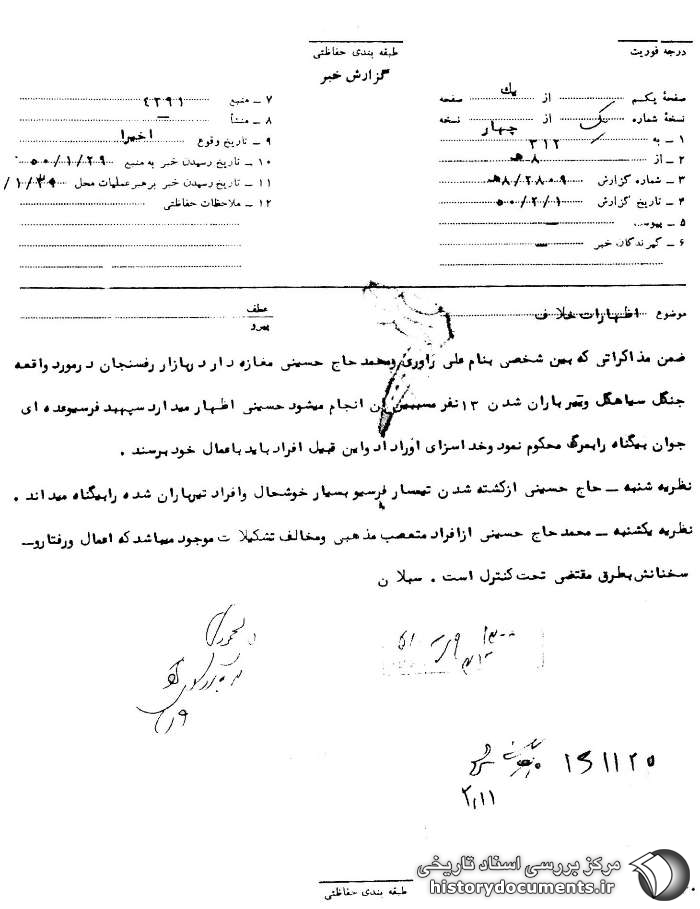 درجه فوریت
طبقه بندی حفاظتی
گزارش خبر
صفحهٔ یکم از یک صفحه
نسخهٔ شماره از چهار نسخه
۱ ـ به ۳۱۲
۲ ـ از ۸ هـ
۳ ـ شماره گزارش ۸/۲۸۰۹ هـ
۴ ـ تاریخ گزارش ۵۰/۲/۱
۵ ـ پیوست
۶ ـ گیرندگان خبر
۷ ـ منبع ۴۲۹۱
۸ ـ منشأ
۹ ـ تاریخ وقوع اخیرا
۱۰ ـ تاریخ رسیدن خبر به منبع ۵۰/۱/۲۹
۱۱ ـ تاریخ رسیدن خبر برهبر عملیات محل
۱۲ ـ ملاحظات حفاظتی
موضوع اظهارات خلاف
عطف
پیرو
ضمن مذاکراتی که بین شخصی بنام علی راوری ومحمد حاج حسینی مغازه دار دربازار رفسنجان درمورد واقعه
جنگل سیاهکل وتیر باران شدن ۱۳ نفر مسببین آن انجام میشود حسینی اظهار میدارد سپهبد فرسیوعده ای
جوان بیگناه رابمرگ محکوم نمود وخدا سزای اوراداد واین قبیل افراد باید باعمال خود برسند .
نظریه شنبه ـ حاج حسینی ازکشته شدن تیمسار فرسیو بسیار خوشحال وافراد تیرباران شده رابیگناه میداند .
نظریه یکشنبه ـ محمد حاج حسینی ازافراد متعصب مذهبی ومخالف تشکیلات موجود میباشد که اعمال ورفتارو
سخنانش بطرق مقتضی تحت کنترل است . سبلان
طبقه بندی حفاظتی
مرکز بررسی اسناد تاریخی
historydocuments.ir